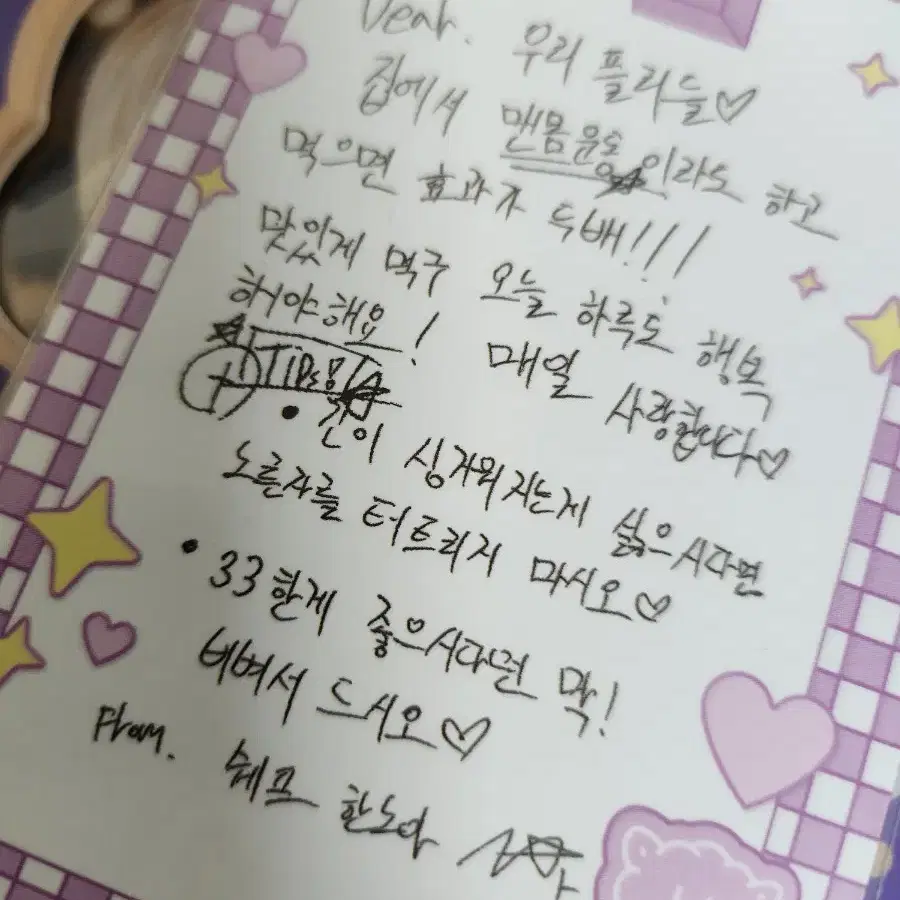 Dear. 우리 플리들♡
집에서 맨몸운동이라도 하고
먹으면 효과가 두배!!!
맛있게 먹구 오늘 하루도 행복
해야해요! 매일 사랑합니다♡
+ TIP
• 간이 싱거워지는게 싫으시다면
노른자를 터트리지 마시오♡
• 33한게 좋으시다면 막!
비벼서 드시오♡
From. 쉐프 한노아